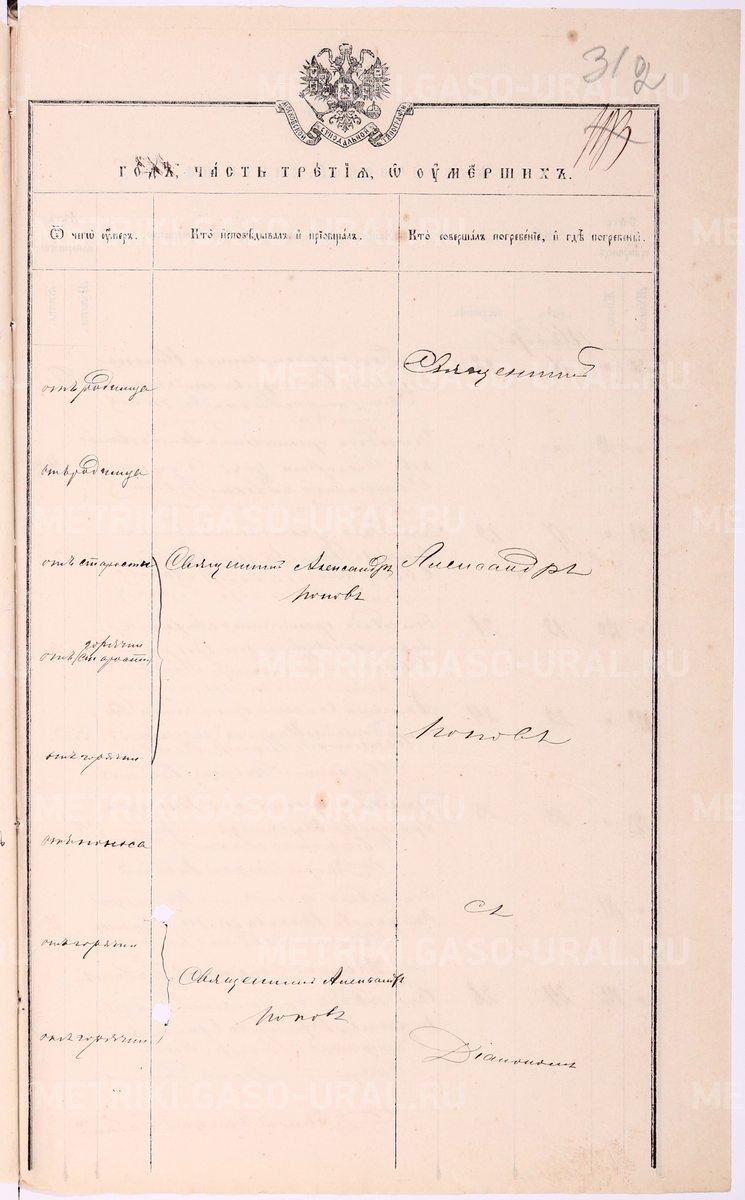 312
МОСКОВСКОЙ СѴНОДАЛЬНОЙ ТИПОГРАФІИ
ГОДЪ, ЧАСТЬ ТРЕТІЯ, Ѿ ОУМЕРШИХЪ.
Ѿ чегѡ оумеръ.
Кто исповѣдывалъ и пріобщалъ.
Кто совершалъ погребеніе, и гдѣ погребены.
Священникъ
отъ родимца
отъ родимца
отъ старости
Священникъ Александръ
Поповъ
Александръ
горячки
отъ старости
Поповъ
отъ горячки
отъ поноса
съ
отъ горячки
Священникъ Александръ
Поповъ
отъ горячки
Діакономъ
METRIKI.GASO-URAL.RU